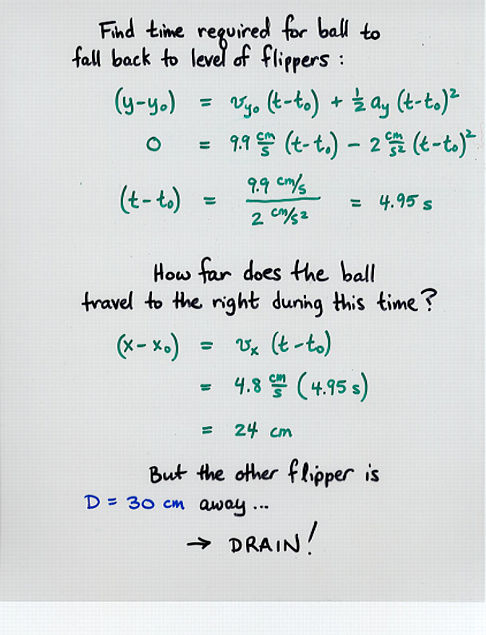 Find time required for ball to
fall back to level of flippers :
(y-y₀) = v_y₀ (t-t₀) + ½ a_y (t-t₀)²
0 = 9.9 cm/s (t-t₀) - 2 cm/s² (t-t₀)²
(t-t₀) = 9.9 cm/s / 2 cm/s² = 4.95 s
How far does the ball
travel to the right during this time?
(x-x₀) = v_x (t-t₀)
= 4.8 cm/s (4.95 s)
= 24 cm
But the other flipper is
D = 30 cm away...
→ DRAIN!